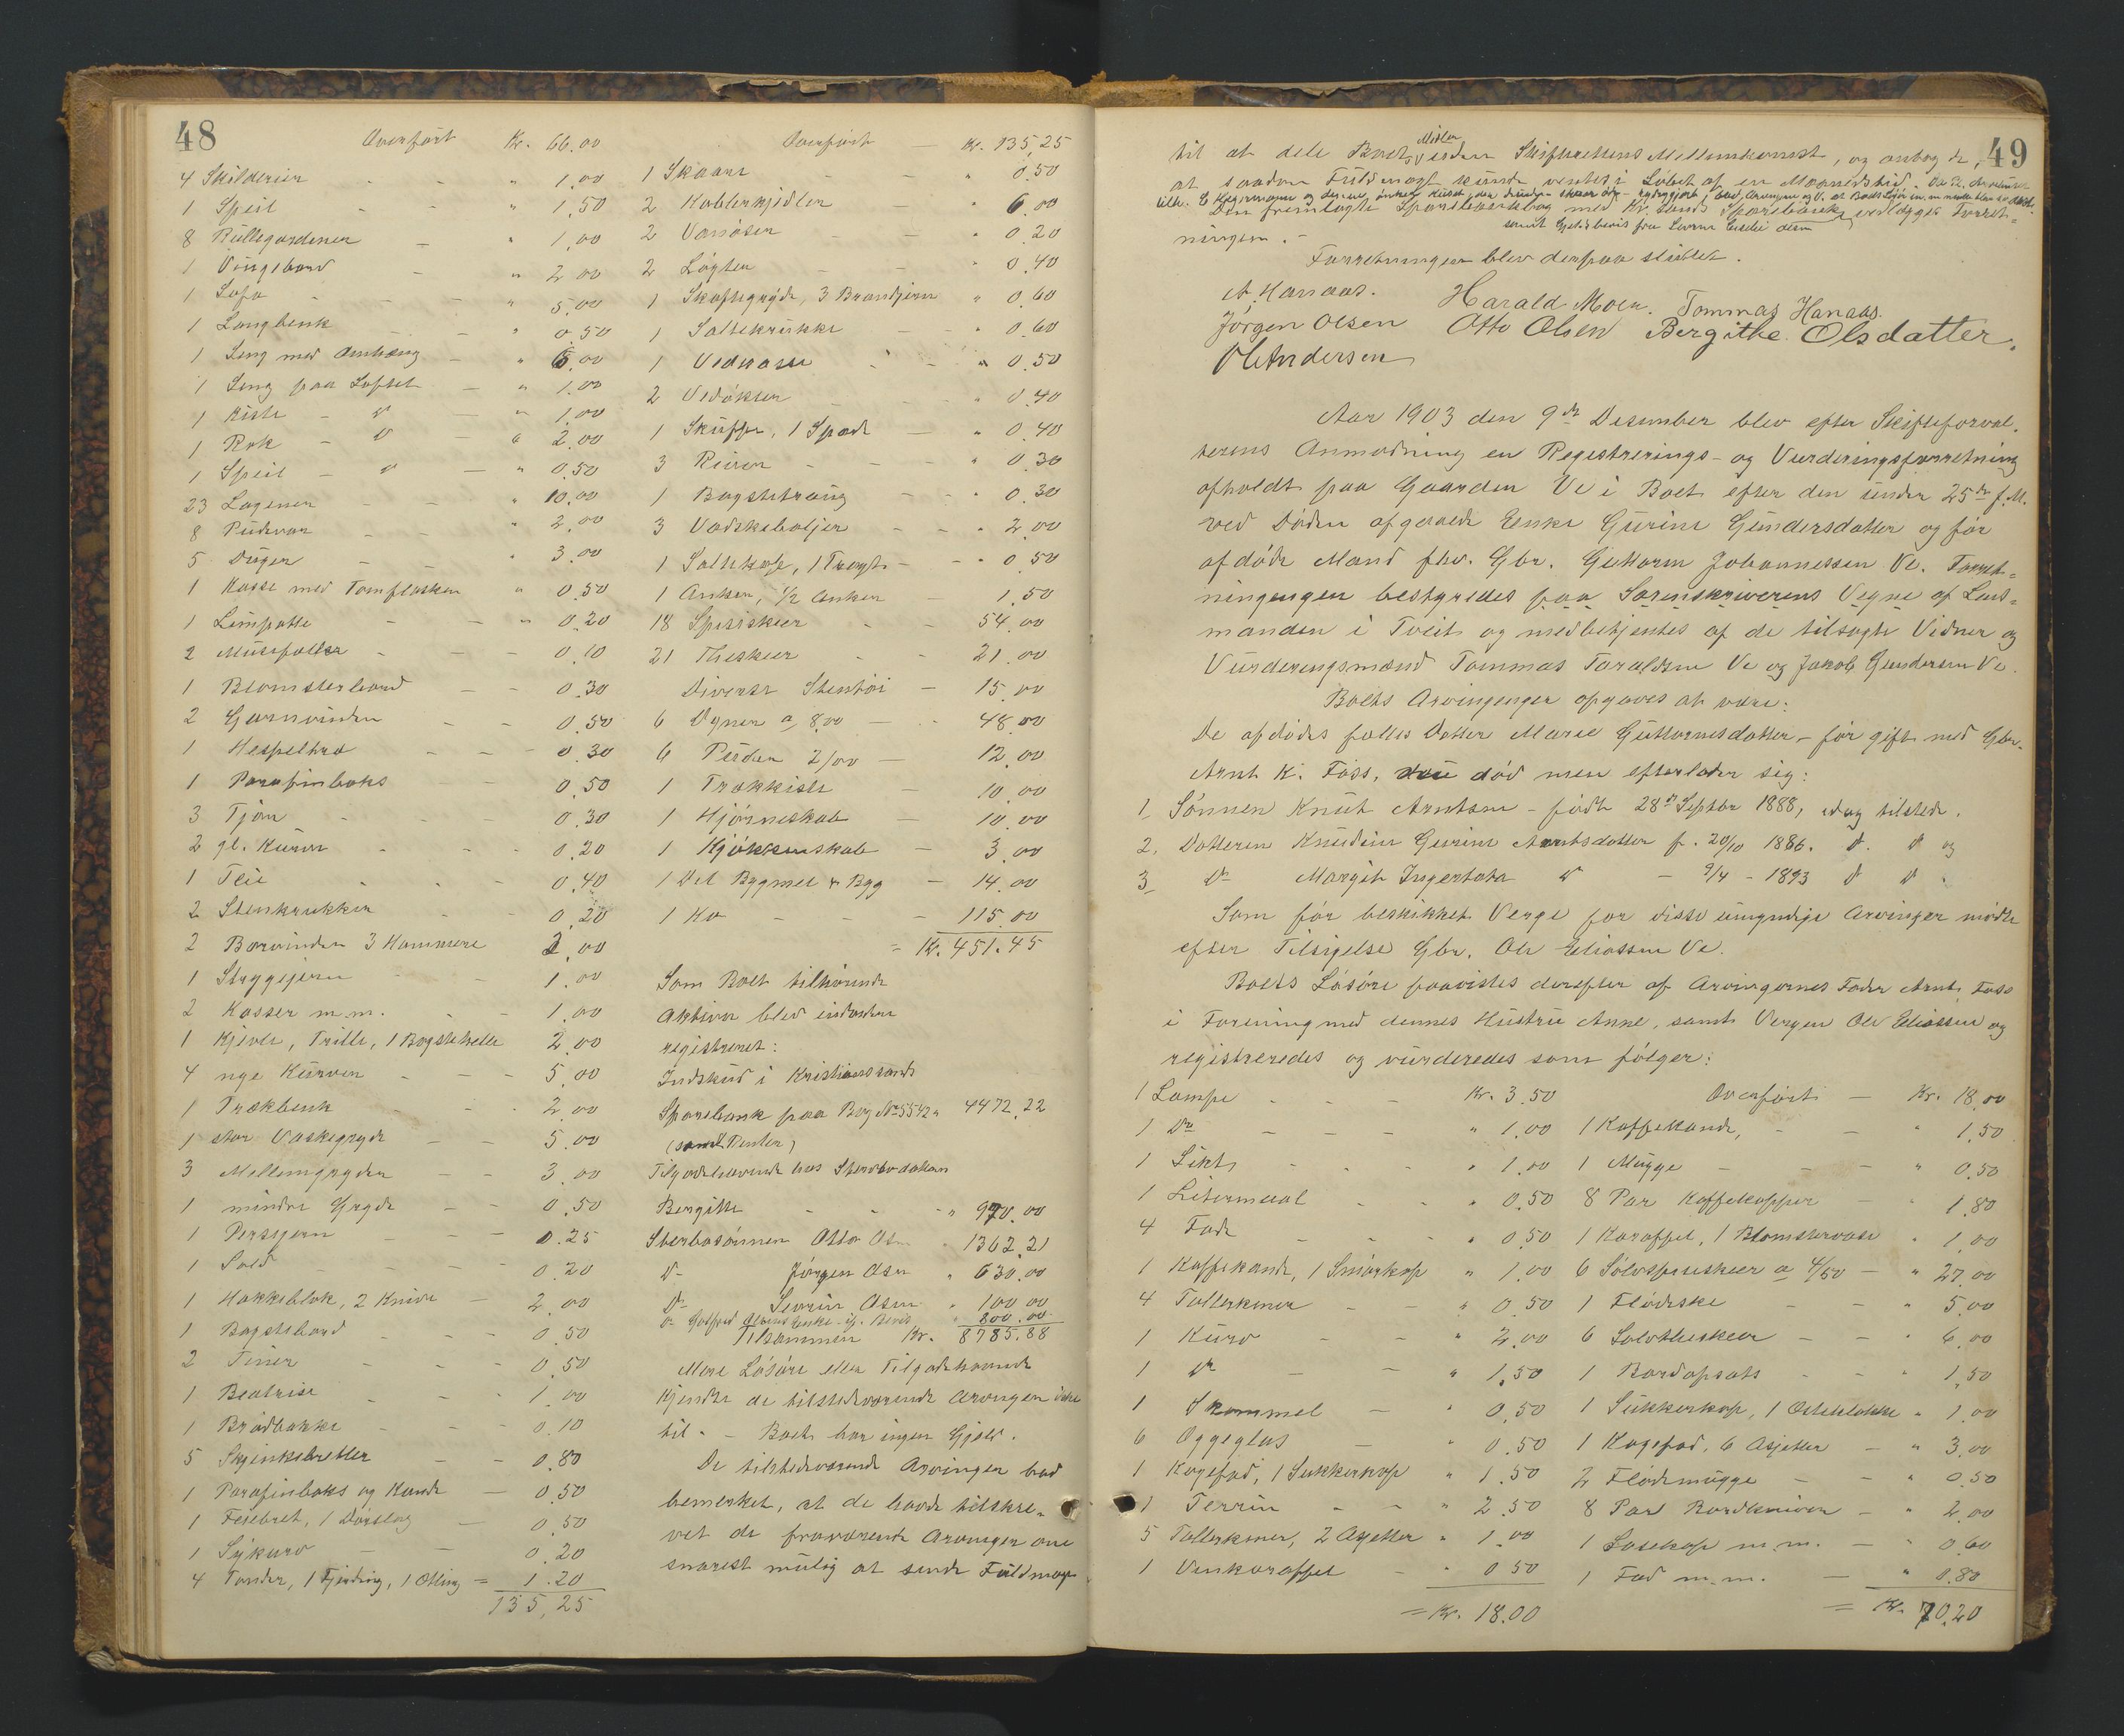 48
Overført Kr. 66.00
4 Skilderier - - " 1.00
1 Speil - - " 1.50
8 Rullegardener - " 1.00
1 Vingebord - " 2.00
1 Sofa - - " 5.00
1 Langbenk - - " 0.50
1 Seng med Omhæng - " 6.00
1 Seng paa Loftet - " 1.00
1 Kiste - d - " 1.00
1 Rok - d - " 2.00
1 Speil - d - " 0.50
23 Lagener - - " 10.00
8 Pudevar - - " 2.00
5 Duger - " 3.00
1 Kasse med Tomflasker " 0.50
1 Limpotte - - " 0.20
2 Musefælder - - - 0.10
1 Blomsterbord - - 0.30
2 Garnvinder - - 0.50
1 Hespeltræ - - - 0.30
1 Parafinboks - - 0.50
3 Tjør - - 0.30
2 gl. Kurver - - - 0.20
1 Tele - - - 0.40
2 Stenkrukker - - 0.20
2 Borvinder 3 Hammere 2.00
1 Støggejern - - 1.00
2 Kasser m.m. - - 1.00
1 Kjevle, Trille, 1 Bagstehelle 2.00
4 nye Kurver - - - 5.00
1 Trækbenk - - - 2.00
1 stor Vaskegryde - - 5.00
3 Mellemgryder - - 3.00
1 mindre Gryde - - 0.50
1 Persejern - - - 0.25
1 Sold - - - 0.20
1 Hakkeblok, 2 Knive - 2.00
1 Bagstebord - - 0.50
2 Tiner - - - 0.50
1 Beatrise - - - 1.00
1 Brødbakke - - - 0.10
5 Skjenkebretter - - 0.80
1 Parafinboks og Kande - 0.50
1 Fesebret, 1 Dørslag - 0.50
1 Sykurv - - 0.20
4 Tønder, 1 Fjerding, 1 Otting = 1.20
135,25
Overført - Kr. 135,25
1 Skaar - - " 0.50
2 Kobberkjedler - " 6.00
2 Vanøser - - " 0.20
2 Løgter - - " 0.40
1 Skaftegryde, 3 Brandjern " 0.60
1 Saltekrukke - - " 0.60
1 Vedkasse - - " 0.50
2 Vedøkser - - " 0.40
1 Skuffe, 1 Spade - " 0.40
3 River - - - " 0.30
1 Bagstetraug - - " 0.30
3 Vadskebaljer - - " 2.00
1 Saltekop, 1 Tragt - - " 0.50
1 Anker, 1/2 Anker - 1.50
18 Spiseskeer - - 54.00
21 Theskeer - - 21.00
Diverse Stentøi - 15.00
6 Dyner a 8.00 - - 48.00
6 Puder 2/00 - 12.00
1 Trækkiste - 10.00
1 Hjørneskab - 10.00
1 Kjøkkenskab - 3.00
1 Del Bygmel & Byg - 14.00
1 Ko - - - 115.00
= Kr. 451.45
Som Boet tilhørende
Aktiva blev endvidere
registreret:
Indskud i Kristianssands
Sparebank paa Bog No 5542 " 4472.22
(samt Renter)
Tilgodehavende hos Stervbodatter
Bergitte - - " 970.00
Sterbosønnen Otto Osen " 1362.21
d- Jørgen Osen " 630.00
Do Severin Osen " 100.00
800.00
Tilsammen Kr. 8785.88
Mere Løsøre eller Tilgodehavende
kjendte de tilstedeværende Arvinger ikke
til. - Boet har ingen Gjeld.
De tilstedeværende Arvinger bad
bemerket, at de havde tilskre-
vet de fraværende Arvinger om
snarest mulig at sende Fuldmagt
49
til at dele Boets Midler uden Skifterettens Mellemkomst, og antog de,
at saadan Fuldmagt kunde ventes i Løbet af en Maanedstid.
Den fremlagte Sparebankbog med Kr.sands Sparebank vedlægges Forret-
ningen. -
Forretningen blev derpaa sluttet.
A. Hanaas. Harald Moen. Tommas Hanaas.
Jørgen Olsen Otto Olsen Bergithe Olsdatter.
O Andersen
Aar 1903 den 9de Desember blev efter Skifteforval-
terens Anmodning en Registrerings- og Vurderingsforretning
afholdt paa Gaarden Ve i Boet efter den under 25de f.M.
ved Døden afgaaede Enke Gurine Gundersdatter og før
afdøde Mand fhv. Gbr. Guttorm Johannessen Ve. Forret-
ningengen bestyredes paa Sorenskriverens Vegne af Lens-
manden i Tveit og medbetjentes af de tilsagte Vidner og
Vurderingsmænd Tommas Taraldsen Ve og Jakob Gundersen Ve.
Boets Arvingenger opgaves at være:
De afdødes fælles Datter Marie Guttormsdatter - før gift med Gbr.
Arnt K. Foss, død men efterlader sig:
1, Sønnen Knut Arntsen - født 28de Septbr 1888, idag tilstede.
2, Datteren Knudine Gurine Arntsdatter f. 20/10 1886. d. d og
3, Do Margit Ingertoha d - 9/4 - 1893 d d.
Som før beskikket Verge for disse umyndige Arvinger mødte
efter Tilsigelse Gbr. Ole Eliassen Ve.
Boets Løsøre paavistes derefter af Arvingernes Fader Arnt Foss
i Forening med dennes Hustru Anne, samt Vergen Ole Eliassen og
registreredes og vurderedes som følger:
1 Lampe - - - Kr. 3.50
1 Do - - - " 1.00
1 Likt - - - " 1.00
1 Litermaal - - " 0.50
4 Fade - - - " 0.50
1 Kaffekande, 1 Smørkop " 1.00
4 Tallerkener - - " 0.50
1 Kurv - - " 2.00
1 do - - " 1.50
1 Skammel - " 0.50
6 Øggeglas - " 0.50
1 Kagefad, 1 Sukkerkop " 1.50
1 Terrin - - " 2.50
5 Tallerkener, 2 Asjetter " 1.00
1 Vinkaraffel - " 0.50
= Kr. 18.00
Overført - Kr. 18.00
1 Kaffekande, - - " 1.50
1 Mugge - - - " 0.50
8 Par Kaffekopper - " 1.80
1 Karaffel, 1 Blomstervase " 1.00
6 Sølvspiseskeer a 4/50 - " 27.00
1 Flødeske - - " 5.00
6 Sølvtheskeer - - " 6.00
1 Bordopsats - - " 1.50
1 Sukkerkop, 1 Osteklokke " 1.00
1 Kagefad, 6 Asjetter - " 3.00
2 Flødemugge - - " 0.50
8 Par Bordkniver - " 2.00
1 Sosekop m.m. - " 0.60
1 Fad m.m. - " 0.80
= Kr. 70.20